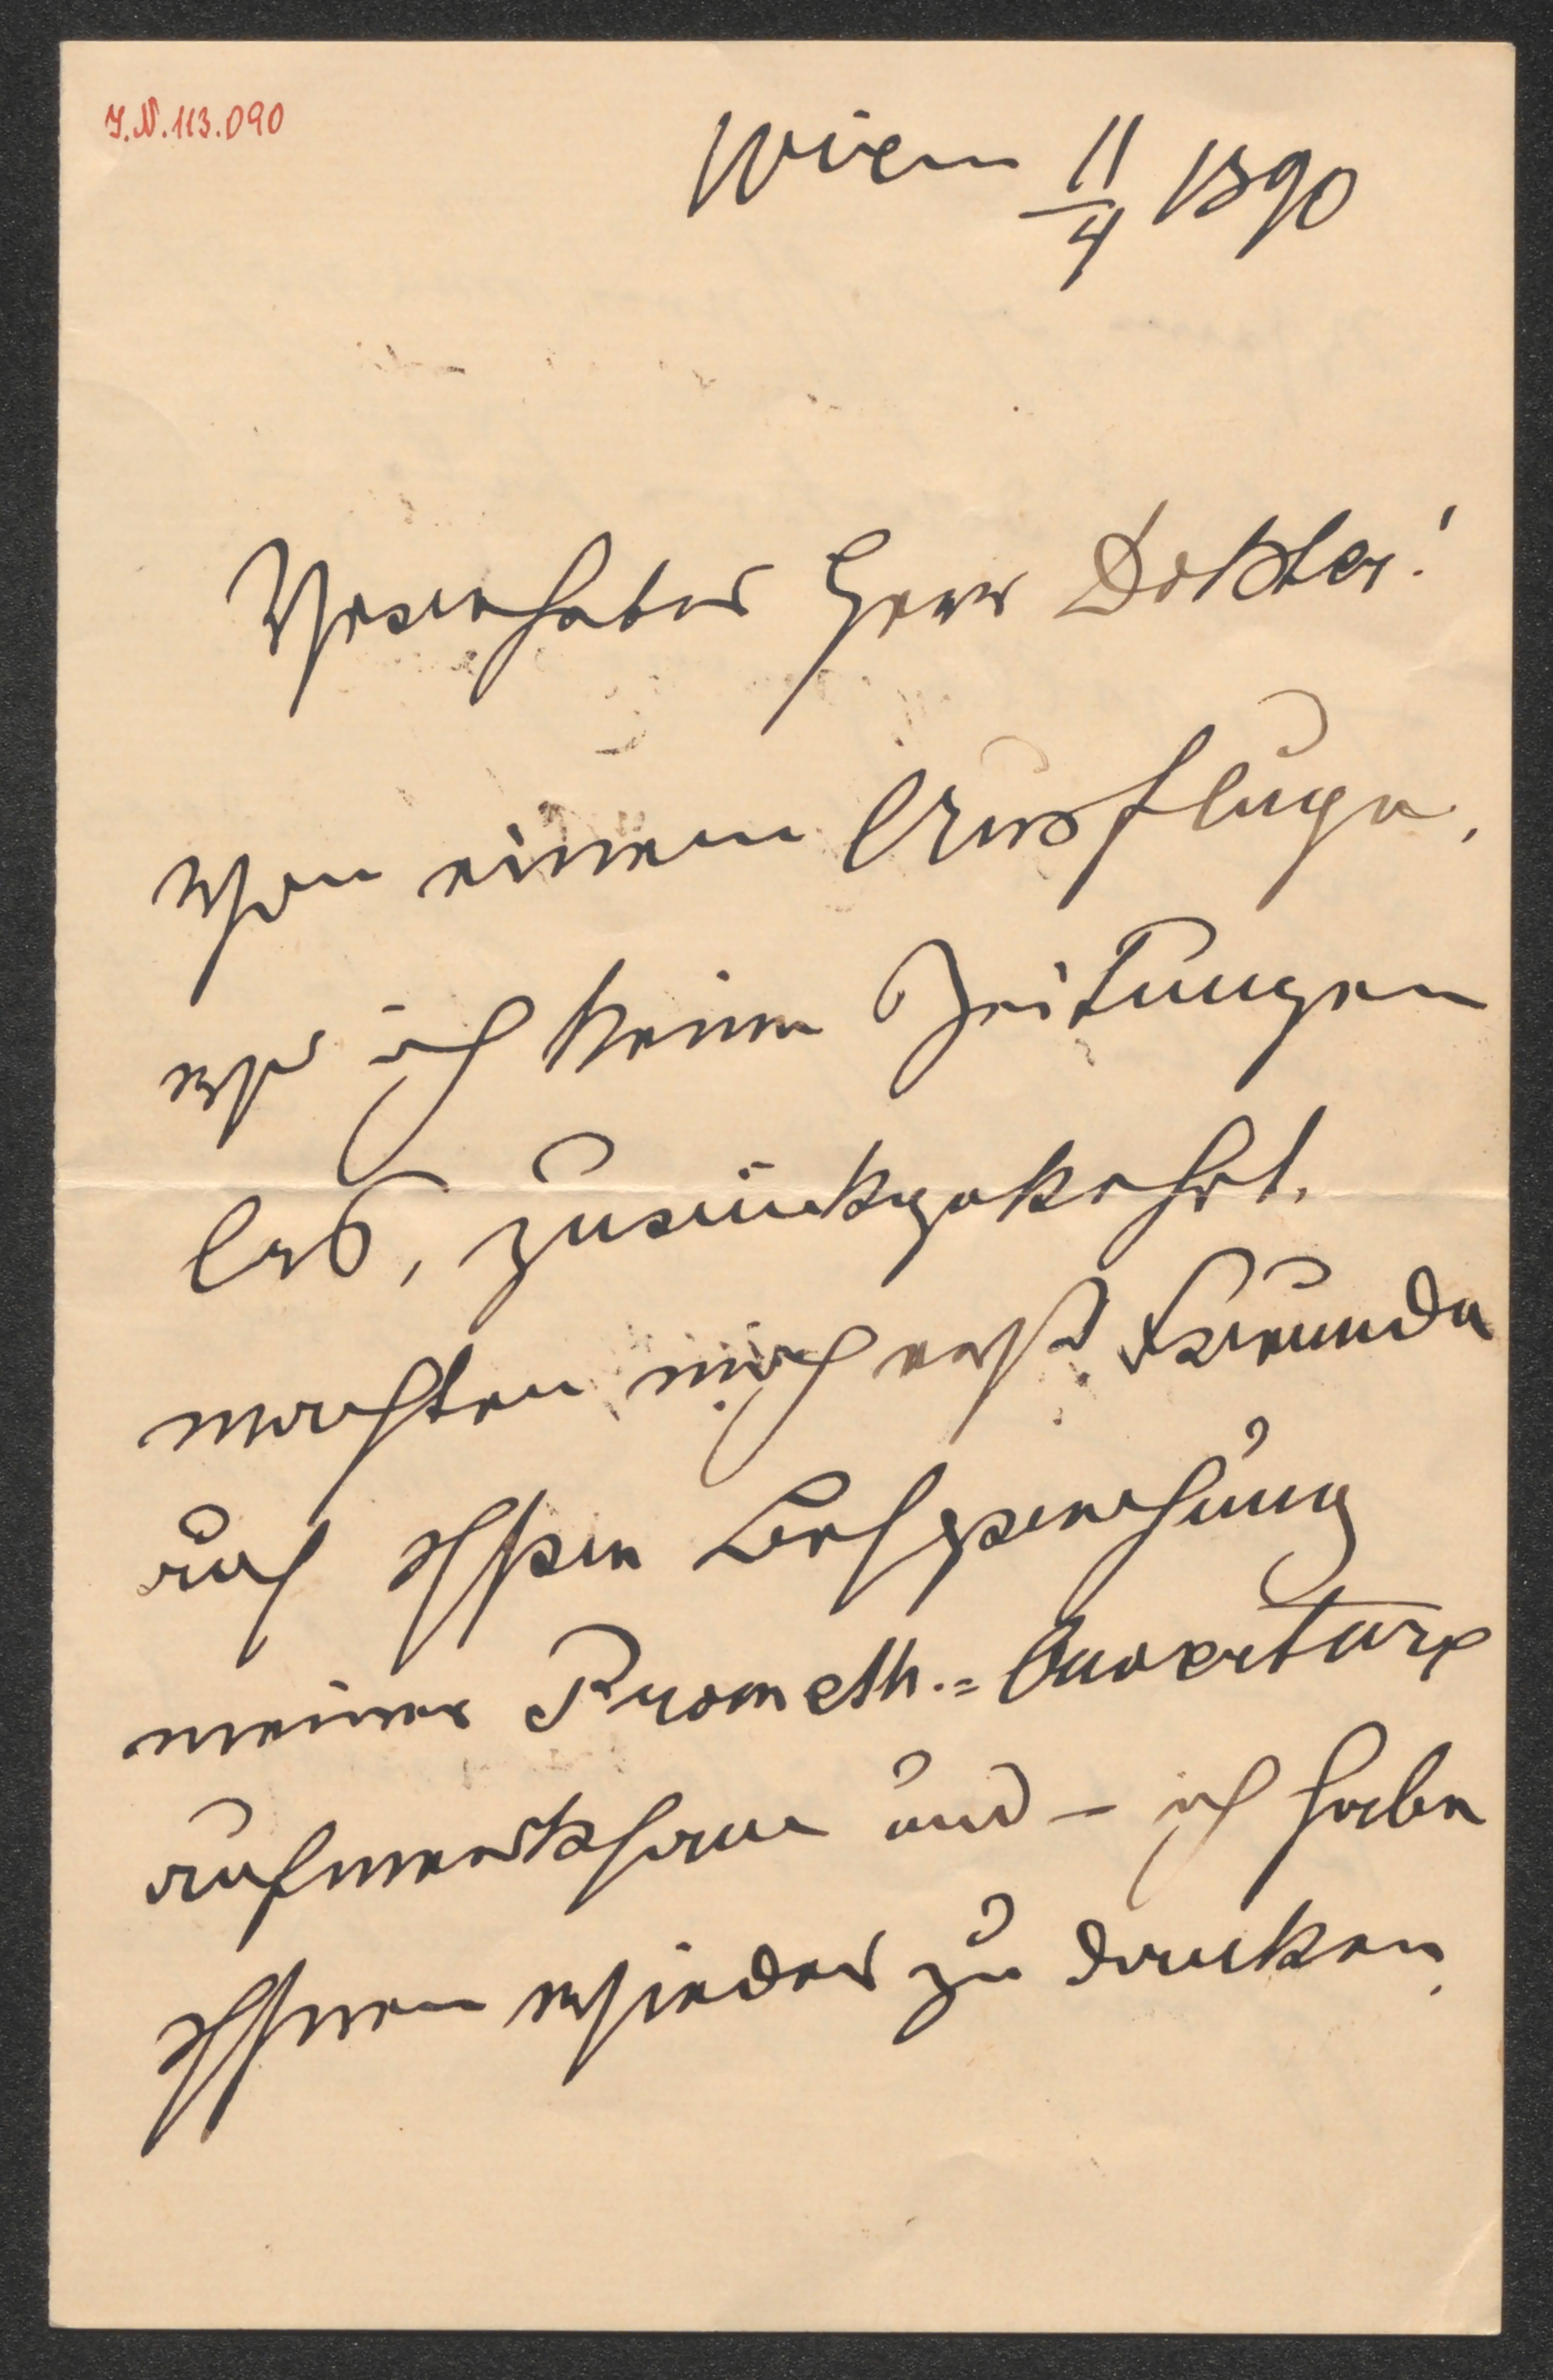 J.N. 113.090
Wien 11/4 1890
Verehrter Herr Doktor!
Von einem Ausfluge,
wo ich keine Zeitungen
las, zurückgekehrt,
machten mich erst Freunde
auf Ihre Besprechung
meiner Prometh.=Ouverture
aufmerksam und – ich habe
Ihnen wieder zu danken,